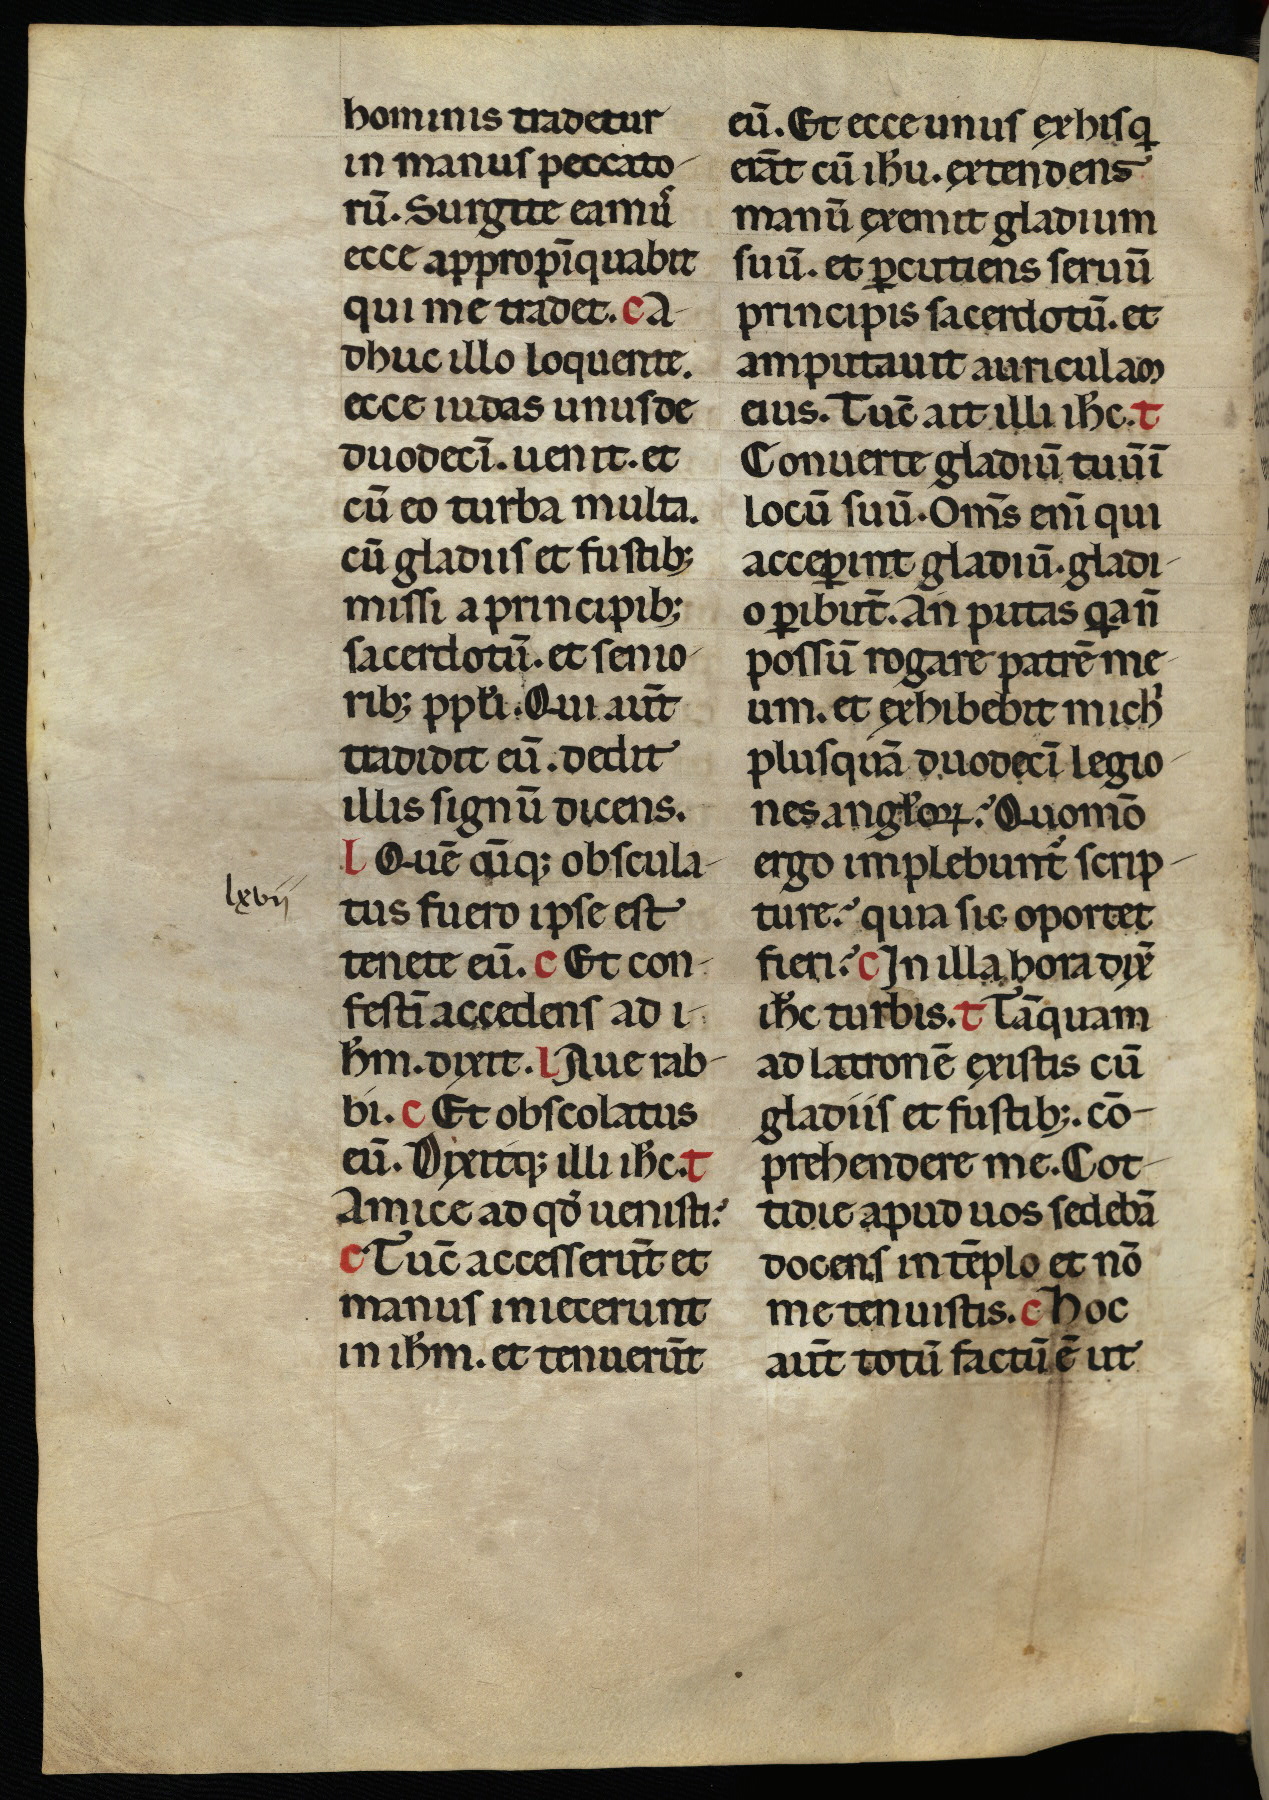 hominis tradetur
in manus peccato-
rū. Surgite eamuˢ
ecce appropīquabit
qui me tradet. c A-
dhuc illo loquente.
ecce iudas unus de
duodecī. uenit. et
cū eo turba multa.
cū gladiis et fustib;
missi a principib;
sacerdotū. et senio-
rib; ppłi. Qui aūt
tradidit eū. dedit
illis signū dicens.
L Quē cūq; obscula-
lxvii
tus fuero ipse est
tenete eū. c Et con-
festī accedens ad i-
ħm. dixit. L Aue rab-
bi. c Et obscolatus
eū. Dixitq; illi iħc. t
Amice ad qđ uenisti?
c Tūc accesserūt et
manus iniecerunt
in iħm. et tenuerūt
eū. Et ecce unus ex his q
erāt cū iħu. extendens
manū exemit gladium
suū. et ꝑcutiens seruū
principis sacerdotū. et
amputauit auriculam
eius. Tūc ait illi iħc. t
Conuerte gladiū tuū ī
locū suū. Om̄s enī qui
acceꝑint gladiū. gladi-
o ꝑibūt. An putas q̄a ñ
possū rogare patrē me-
um. et exhibebit mich
plusquā duodecī legio-
nes angłoꝝ? Quomō
ergo implebunt᷑ scrip-
ture? quia sic oportet
fieri? c In illa hora dix̄
iħc turbis. t Tāquam
ad latronē existis cū
gladiis et fustib;. cō-
prehendere me. Cot-
tidie apud uos sedebā
docens in tēplo et nō
me tenuistis. c Hoc
aūt totū factū ē ut